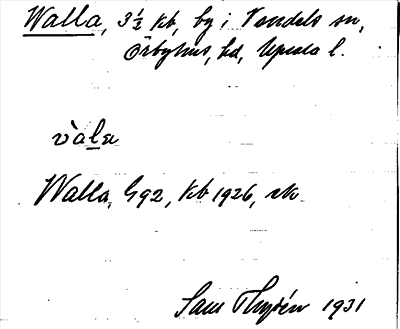 Walla, 3½ kb, by i Vendels sn,
Örbyhus, hd, Upsala l.
vàlα
Walla, G92, kb 1926, sk
Sam Thysén 1931